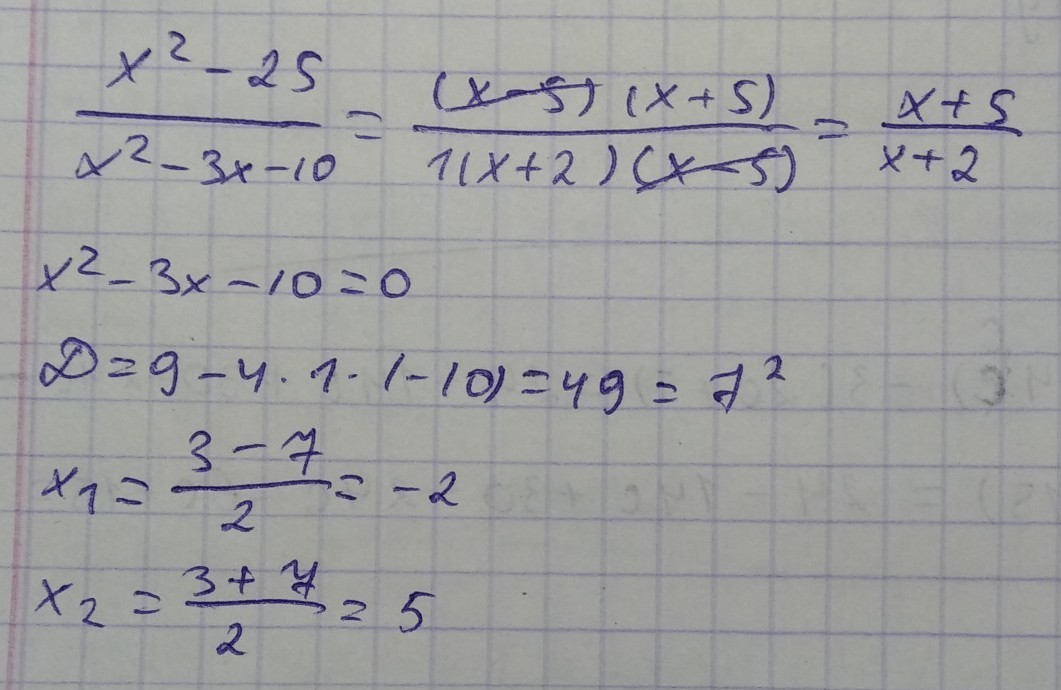 x² - 25 / x² - 3x - 10 = (x - 5) (x + 5) / 1(x + 2) (x - 5) = x + 5 / x + 2
x² - 3x - 10 = 0
D = 9 - 4 · 1 · (-10) = 49 = 7²
x₁ = 3 - 7 / 2 = -2
x₂ = 3 + 7 / 2 = 5